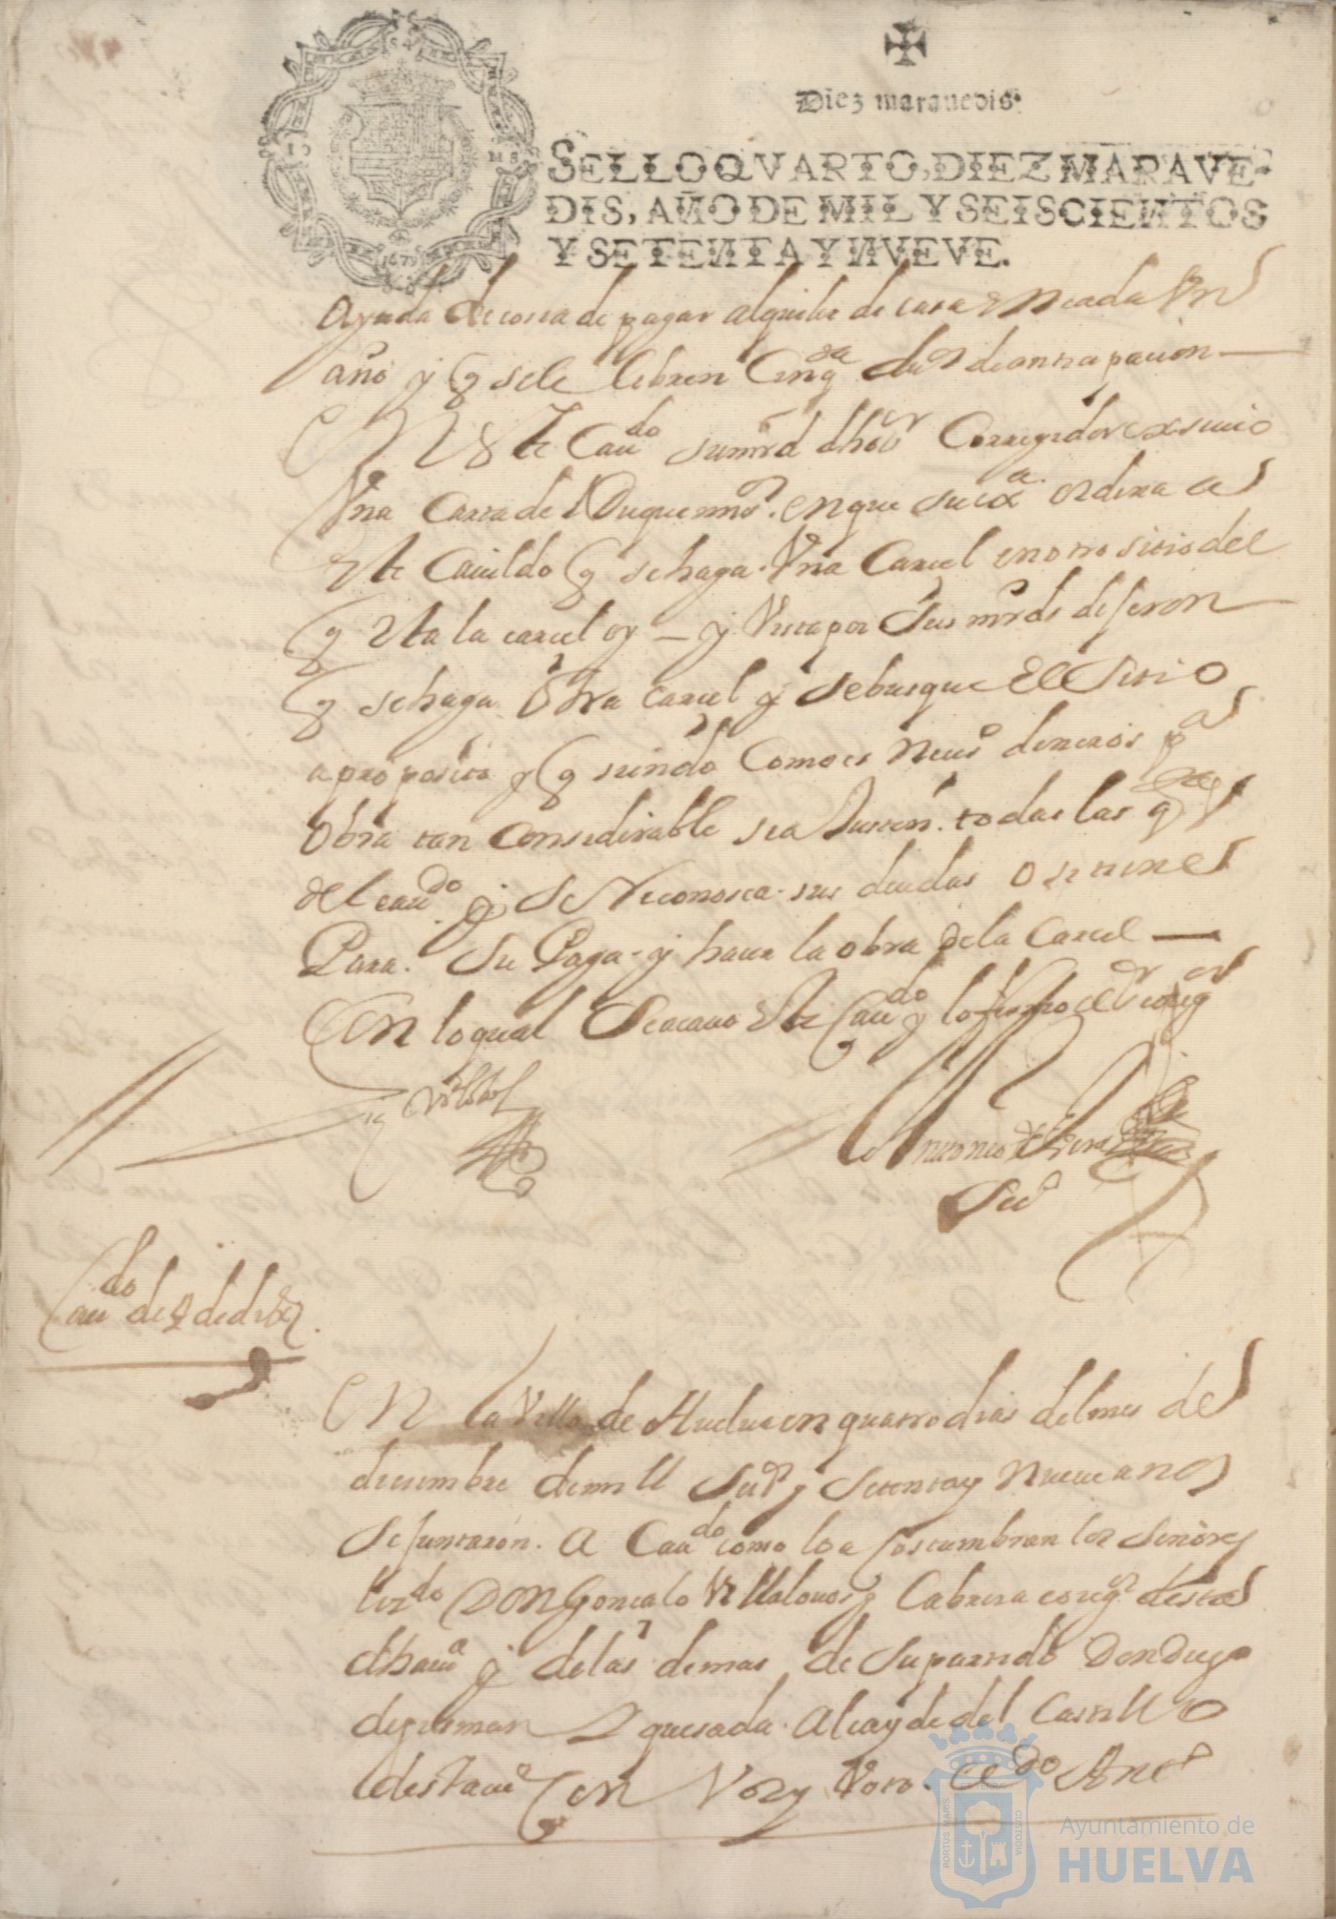 Diez maravedis.
SELLO QVARTO, DIEZ MARAVE-
DIS, AÑO DE MIL Y SEISCIENTOS
Y SETENTA Y NVEVE.
1679
Ayuda de costa de pagar alquiler de casa en cada Vn
año y q se le libren Cinqta dus de
En este Caudo su mrd dho sr Corregidor exsiuio
Vna Carta del Duque mi sr. en que su exa ordena a
este Cauildo q se haga Vna Carcel en otro sitio del
q esta la carcel oy — y Vista por sus mrds dijeron
q se haga otra carcel y se busque el sitio
a proposito y q siendo Como es neceso dineros pa
obra tan considerable se a Justen todas las qtas
del caudo y se Reconosca sus deudas o se tiene
Para su Paga y hacer la obra de la Carcel —
Con lo qual se acauo este Caudo y lo firmo el sr corregor
Villalos
Antonio de
Caudo de 4 de dize
En la Villa de Huelua en quatro dias del mes de
disiembre de mill Seisos y Setenta y Nueue anos
se Juntaron A Caudo como lo a Costumbran los Señores
lizdo DON Gonzalo Villalouos y Cabrera corregr desta
dha va y de las demas de su partido Don Diego
de guzman Quesada Alcayde del Castillo
desta va Con Voz y Voto.
Ayuntamiento de
HUELVA
PORTUS MARIS
CUSTODIA